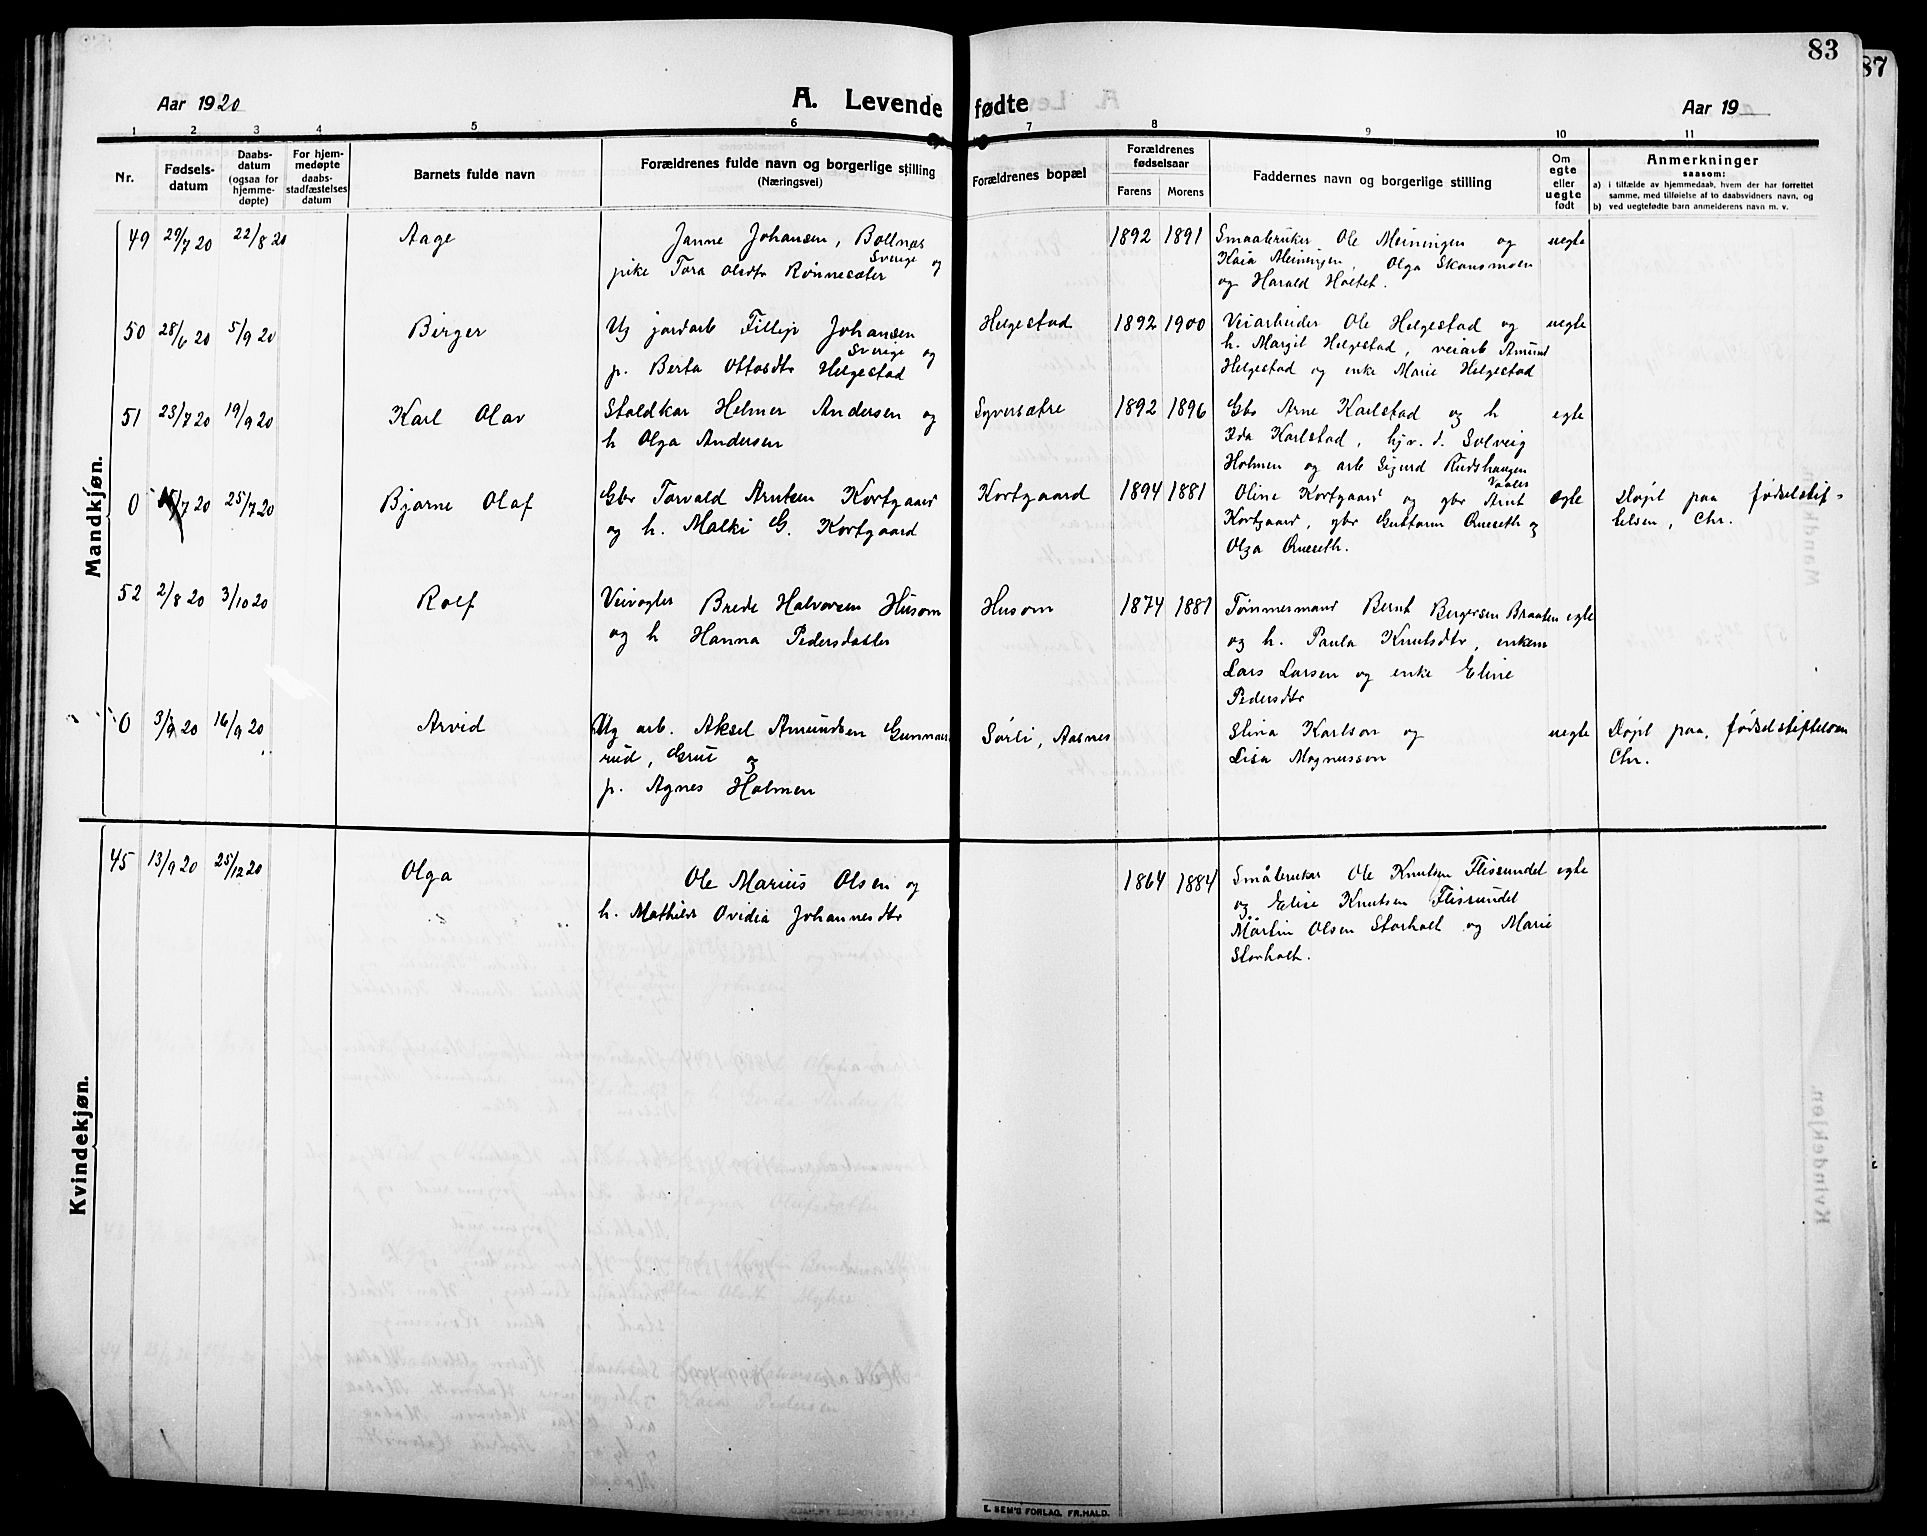 83
87
Aar 1920
A. Levende fødte
Aar 19
1 2 3 4 5 6 7 8 9 10 11
Nr.
Fødsels-
datum
Daabs-
datum
(ogsaa for
hjemme-
døpte)
For hjem-
medøpte
daabs-
stadfæstelses
datum
Barnets fulde navn
Forældrenes fulde navn og borgerlige stilling
(Næringsvei)
Forældrenes bopæl
Forældrenes
fødselsaar
Farens Morens
Faddernes navn og borgerlige stilling
Om
egte
eller
uegte
født
Anmerkninger
saasom:
a) i tilfælde av hjemmedaab, hvem der har forrettet
samme, med tilføielse av to daabsvidners navn, og
b) ved uegtefødte barn anmelderens navn m. v.
Mandkjøn.
49 29/7 20 22/8 20 Aage
Janne Johansen, Bollnæs
Sverige og
pike Tora Olsdtr Rønnesæter
1892 1891
Smaabruker Ole Meiningen og
Kaia Meiningen, Olga Skansmoen
og Harald Holtet.
uegte
50 28/6 20 5/9 20 Birger
Ug jordarb Fillip Johansen
Sverige og
p. Berta Ottosdtr Helgestad
Helgestad 1892 1900
Veiarbeider Ole Helgestad og
h. Margit Helgestad, veiarb Amund
Helgestad og enke Marie Helgestad
uegte
51 23/7 20 19/9 20 Karl Olav
Staldkar Helmer Andersen og
h Olga Andersen
Syversætre 1892 1896
Gbr Arne Karlstad og h
Ida Karlstad, hjv. d. Solveig
Holmen og arb Sigurd Rudshaugen
Vaaler
egte
0 15/7 20 25/7 20 Bjarne Olaf
Gbr Torvald Arntsen Kortgaard
og h. Malki G. Kortgaard
Kortgaard 1894 1881
Oline Kortgaard og gbr Arnt
Kortgaard, gbr Guttorm Overseth og
Olga Overseth.
egte
Døpt paa fødselsstif-
telsen, Chr.
52 2/8 20 3/10 20 Rolf
Veivogter Brede Halvorsen Husom
og h Hanna Pedersdatter
Husom 1874 1881
Tømmermand Bernt Bergersen Braaten
og h. Paula Knutsdtr, enkem
Lars Larsen og enke Eline
Pedersdtr
egte
0 3/9 20 16/9 20 Arvid
Ug arb. Aksel Amundsen Gunnars
rud, Grue og
p. Agnes Holmen
Sørli, Aasnes
Stina Karlson og
Lisa Magnusson
uegte
Døpt paa fødselstiftelsen
Chr.
Kvindekjøn.
45 13/9 20 25/12 20 Olga
Ole Marius Olsen og
h. Mathilde Ovidia Johannesdtr
1864 1884
Småbruker Ole Knutsen Flissundet
og Elise Knutsen Flissundet
Martin Olsen Storholt og Marie
Storholt.
egte
E. SEM'S FORLAG, FR.HALD.